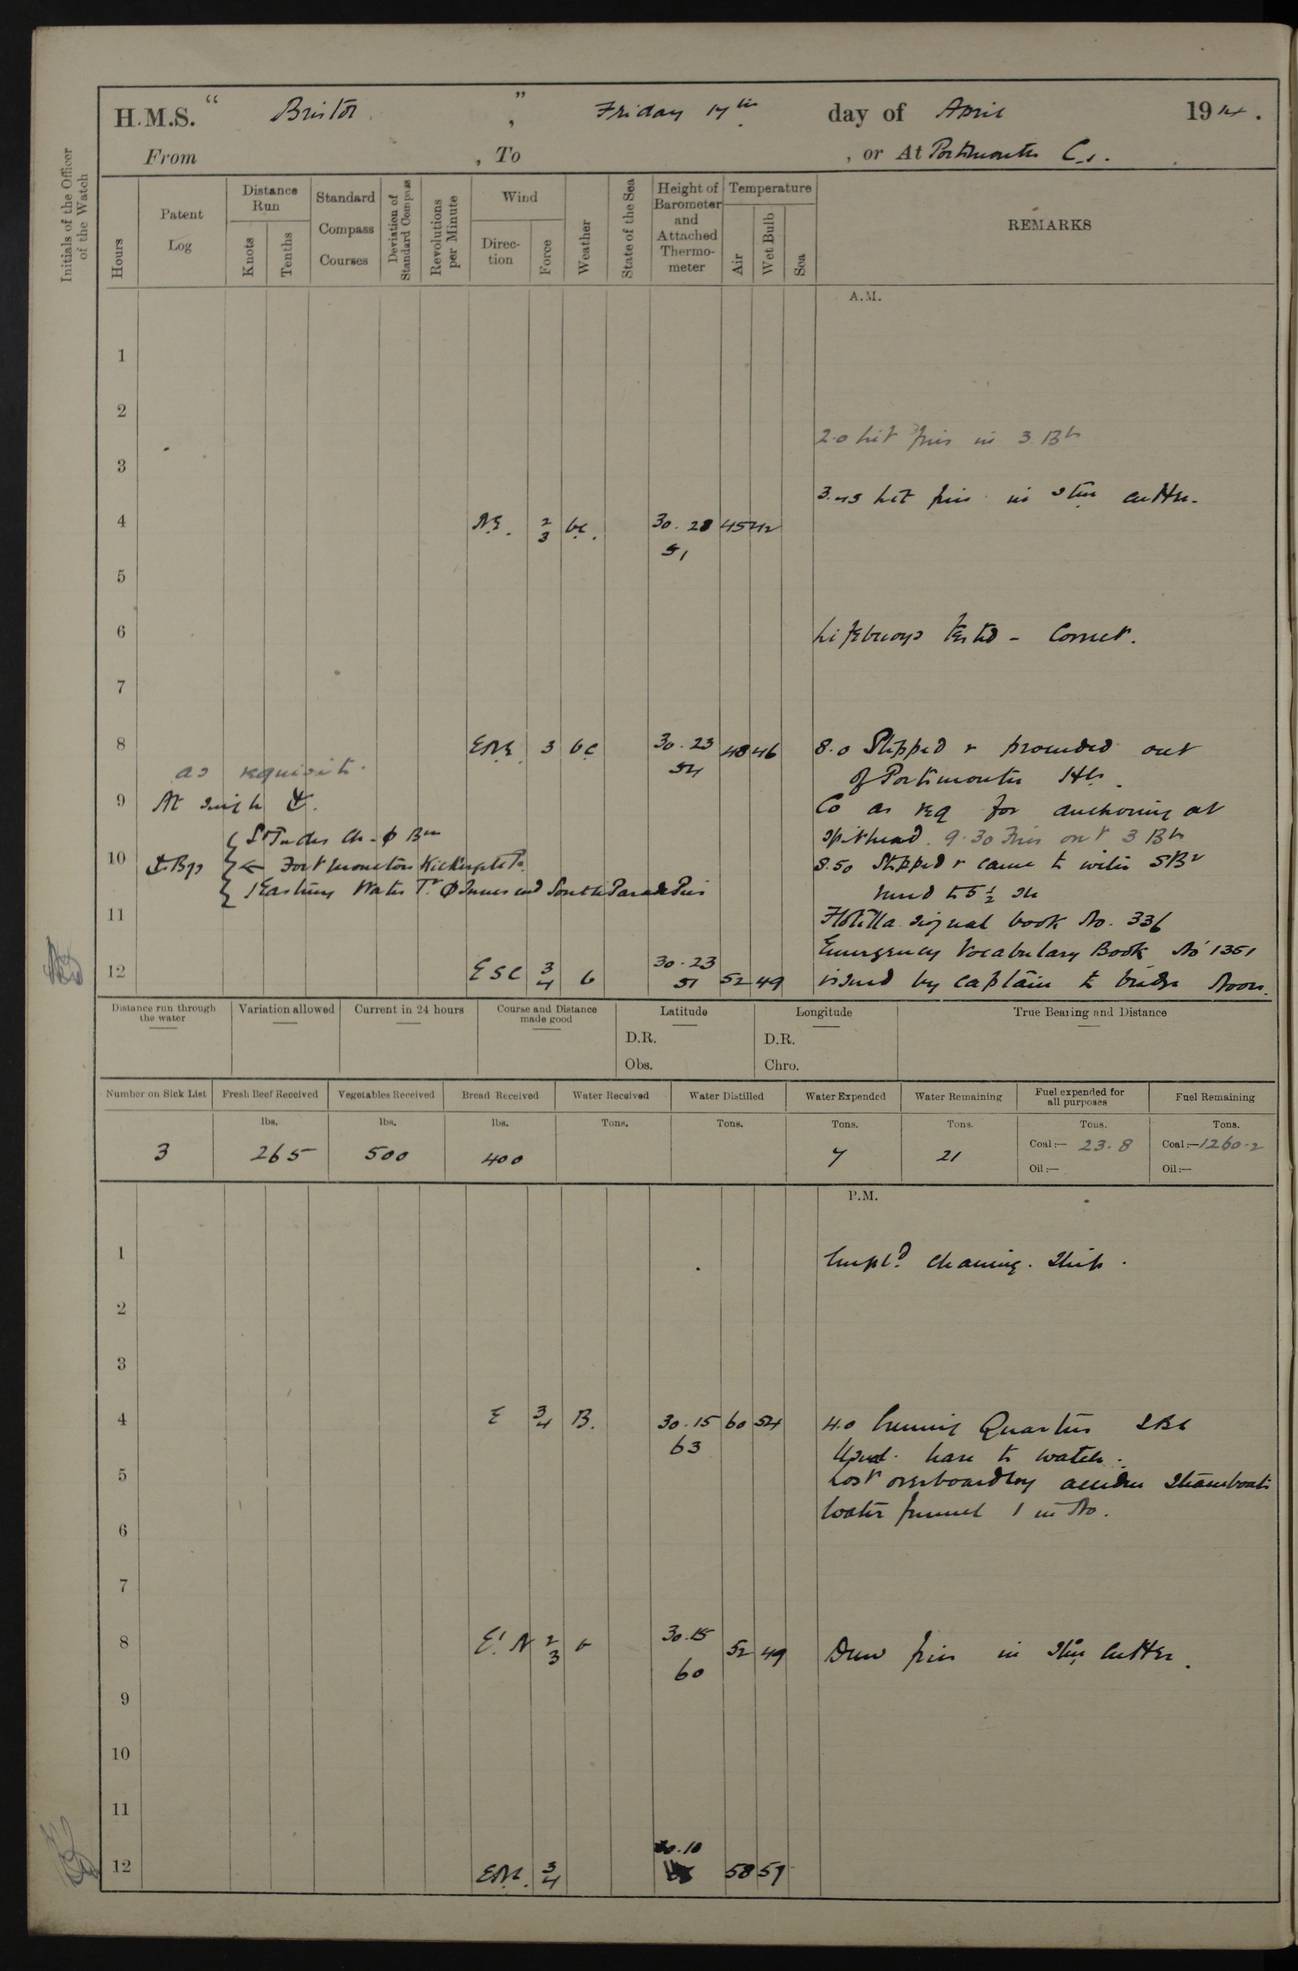 H.M.S. "Bristol", Friday 17th day of April 1914.
From , To , or At Portsmouth
Initials of the Officer of the Watch
Hours
Patent Log
Distance Run
Knots
Tenths
Standard Compass Courses
Deviation of Standard Compass
Revolutions per Minute
Wind
Direction
Force
Weather
State of the Sea
Height of Barometer and Attached Thermometer
Temperature
Air
Wet Bulb
Sea
REMARKS
A.M.
1
2
2.0 Lit fires in 3 Brs
3
3.45 Lit fires in Stm cutter.
4 NE. 2/3 bc. 30.28 45 42
51
5
6 Lifebuoys tested - Correct.
7
8 ENE 3 bc 30.23 48 46 8.0 Slipped & proceeded out
54
as requisite. of Portsmouth Hr.
9 At single Co as req for anchoring at
St Judes Ch. Spithead. 9.30 Fires out 3 Brs
10 Bgs Fort Monckton 8.50 Stopped & came to with SBr
Eastney Water Tr South Parade Pier
11 Flotilla signal book No. 336
Emergency Vocabulary Book No 1351
12 ESE 3/4 b 30.23 52 49 issued by captain to bridge Noon.
51
Distance run through the water
Variation allowed
Current in 24 hours
Course and Distance made good
Latitude
D.R.
Obs.
Longitude
D.R.
Chro.
True Bearing and Distance
Number on Sick List
Fresh Beef Received
Vegetables Received
Bread Received
Water Received
Water Distilled
Water Expended
Water Remaining
Fuel expended for all purposes
Fuel Remaining
lbs. lbs. lbs. Tons. Tons. Tons. Tons. Tons. Tons.
3 265 500 400 7 21 Coal:— 23.8 Coal:— 1260.2
Oil:— Oil:—
P.M.
1 Empld cleaning Ship.
2
3
4 E 3/4 B. 30.15 60 54 4.0 Evening Quarters
63
5 Lost overboard by accident Steamboats
water funnel 1 in No.
6
7
8 E'N 2/3 b 30.15 52 49 Drew fires in Stm Cutter.
60
9
10
11
12 ENE. 3/4 30.10 58 57